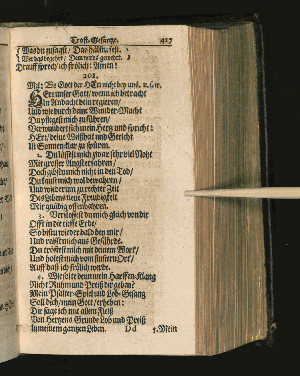 Trost-Gesänge. 417
Was du zusagst / Das hältst fest.
Drauff sprech / ich frölich: Amen!
201.
Mel: Wo Gott der HErr nicht bey uns, u.s.w.
HErr unser Gott / wenn ich betracht
In Andacht dein regieren /
Und wie durch deine Wunder-Macht
Du pflegest mich zu führen /
Verwundert sich mein Herz und spricht:
HErr / deine Weißheit und Gericht
Ist Sonnen-klar zu spüren.
2. Du lässest mich zwar sehr viel Noht
Mit grosser Angst erfahren /
Doch gibstu mich nicht in den Tod /
Du kanst mich wol bewahren /
Und wiederum zu rechter Zeit
Des Lebens neue Freudigkeit
Mir gnädig offenbahren.
3. Verstössest du mich gleich von dir
Offt in die tieffe Erde /
So bistu wieder bald bey mir /
Und reissst mich aus Gefährde.
Du tröstest mich mit deinem Wort /
Und holest mich vom finstern Ort /
Auff daß ich frölich werde.
4. Wie solte denn mein Harffen-Klang
Nicht Ruhm und Preiß dir geben?
Mein Psalter-Spiel und Lob-Gesang
Soll dich / mein Gott / erheben:
Die sage ich mit allem Fleiß
Von Hertzens Grunde Lob und Preiß
In meinem gantzen Leben.
Dd 5. Mein